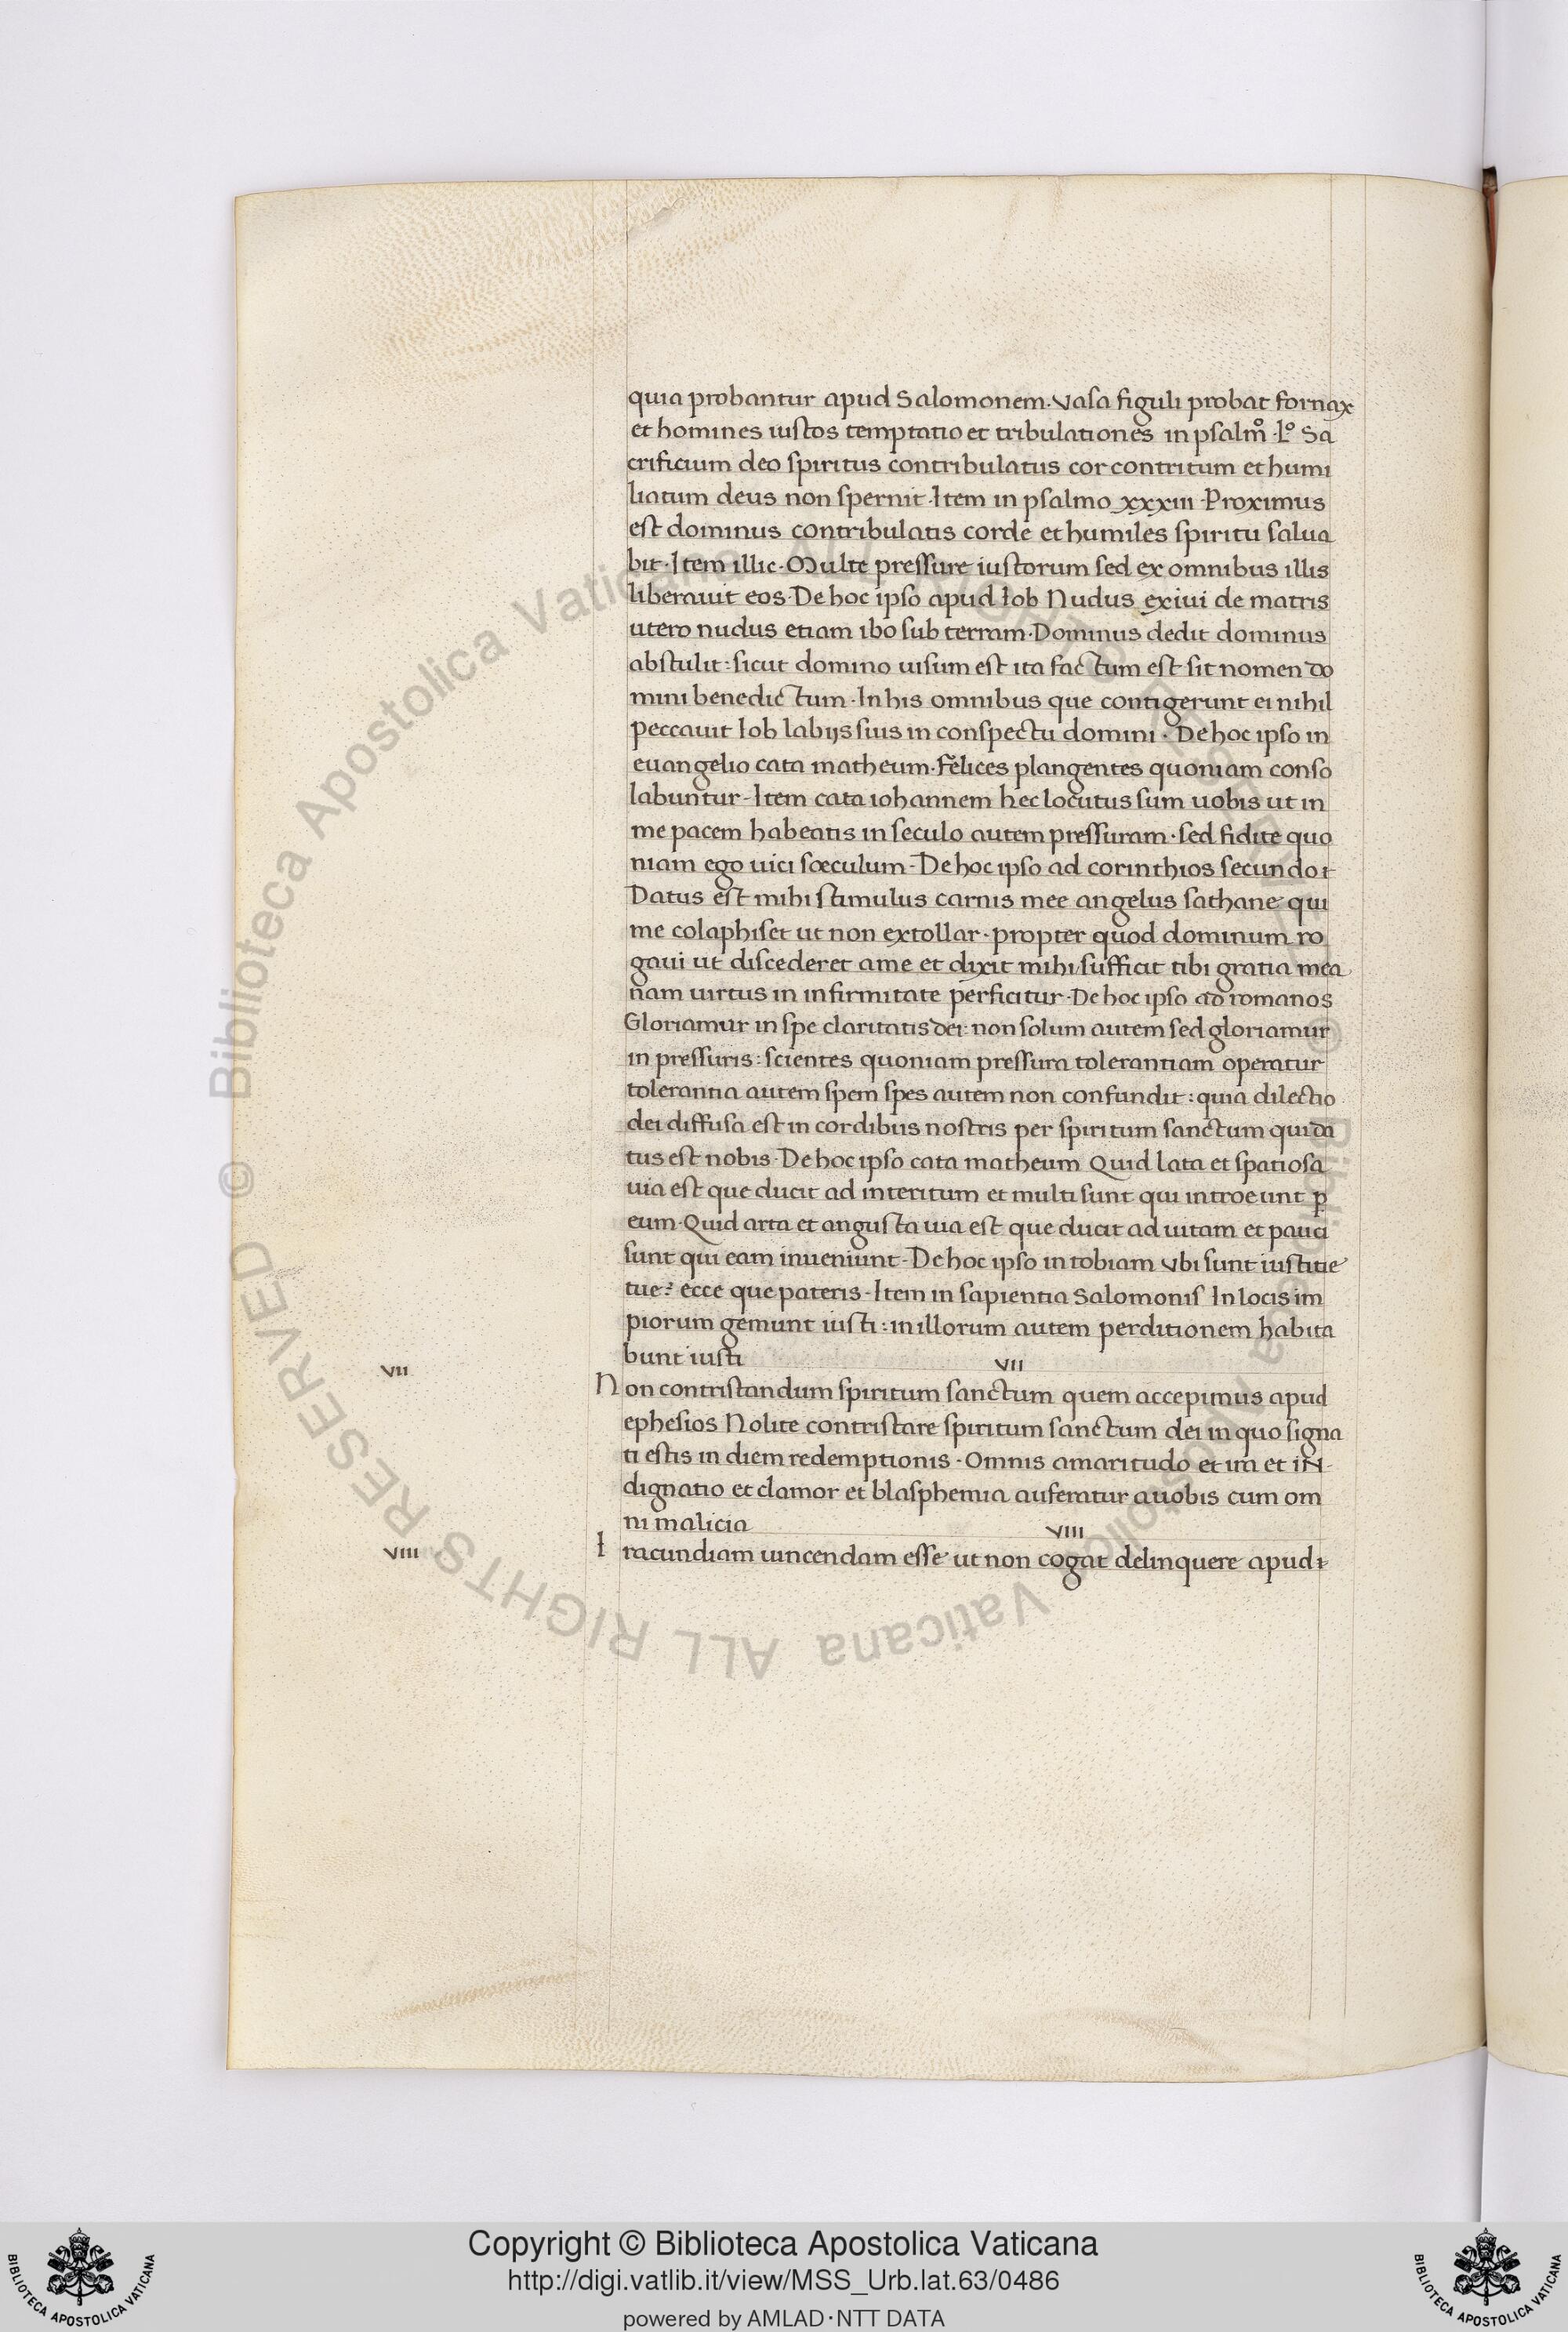 quia probantur apud Salomonem. Vasa figuli probat fornax
et homines iustos temptatio et tribulationes in psalmͦ. Lͦ Sa
crificium deo spiritus contribulatus cor contritum et humi
liatum deus non spernit. Item in psalmo xxxiii. Proximus
est dominus contribulatis corde et humiles spiritu salua
bit. Item illic. Multe pressure iustorum sed ex omnibus illis
liberauit eos. De hoc ipso apud Iob Nudus exiui de matris
utero nudus etiam ibo sub terram. Dominus dedit dominus
abstulit: sicut domino uisum est ita factum est sit nomen do
mini benedictum. In his omnibus que contigerunt ei nihil
peccauit Iob labijs suis in conspectu domini. De hoc ipso in
euangelio cata matheum. Felices plangentes quoniam conso
labuntur. Item cata iohannem hec locutus sum uobis ut in
me pacem habeatis in seculo autem pressuram. sed fidite quo
niam ego uici sæculum. De hoc ipso ad corinthios secundo
Datus est mihi stimulus carnis mee angelus sathane qui
me colaphiset ut non extollar. propter quod dominum ro
gaui ut discederet a me et dixit mihi sufficit tibi gratia mea
nam uirtus in infirmitate perficitur. De hoc ipso ad romanos
Gloriamur in spe claritatis dei: non solum autem sed gloriamur
in pressuris: scientes quoniam pressura tolerantiam operatur
tolerantia autem spem spes autem non confundit: quia dilectio
dei diffusa est in cordibus nostris per spiritum sanctum qui da
tus est nobis. De hoc ipso cata matheum Quid lata et spatiosa
uia est que ducit ad interitum et multi sunt qui introeunt ꝑ
eum. Quid arta et angusta uia est que ducit ad uitam et pauci
sunt qui eam inueniunt. De hoc ipso in tobiam Vbi sunt iustitie
tue? ecce que pateris. Item in sapientia Salomonis In locis im
piorum gemunt iusti: in illorum autem perditionem habita
bunt iusti VII
VII
Non contristandum spiritum sanctum quem accepimus apud
ephesios Nolite contristare spiritum sanctum dei in quo signa
ti estis in diem redemptionis. Omnis amaritudo et ira et iN
dignatio et clamor et blasphemia auferatur a uobis cum om
ni malicia VIII
VIII
Iracundiam uincendam esse ut non cogat delinquere apud
© Biblioteca Apostolica Vaticana ALL RIGHTS RESERVED
© Biblioteca Apostolica Vaticana ALL RIGHTS RESERVED
BIBLIOTECA APOSTOLICA VATICANA
Copyright © Biblioteca Apostolica Vaticana
http://digi.vatlib.it/view/MSS_Urb.lat.63/0486
powered by AMLAD·NTT DATA
BIBLIOTECA APOSTOLICA VATICANA